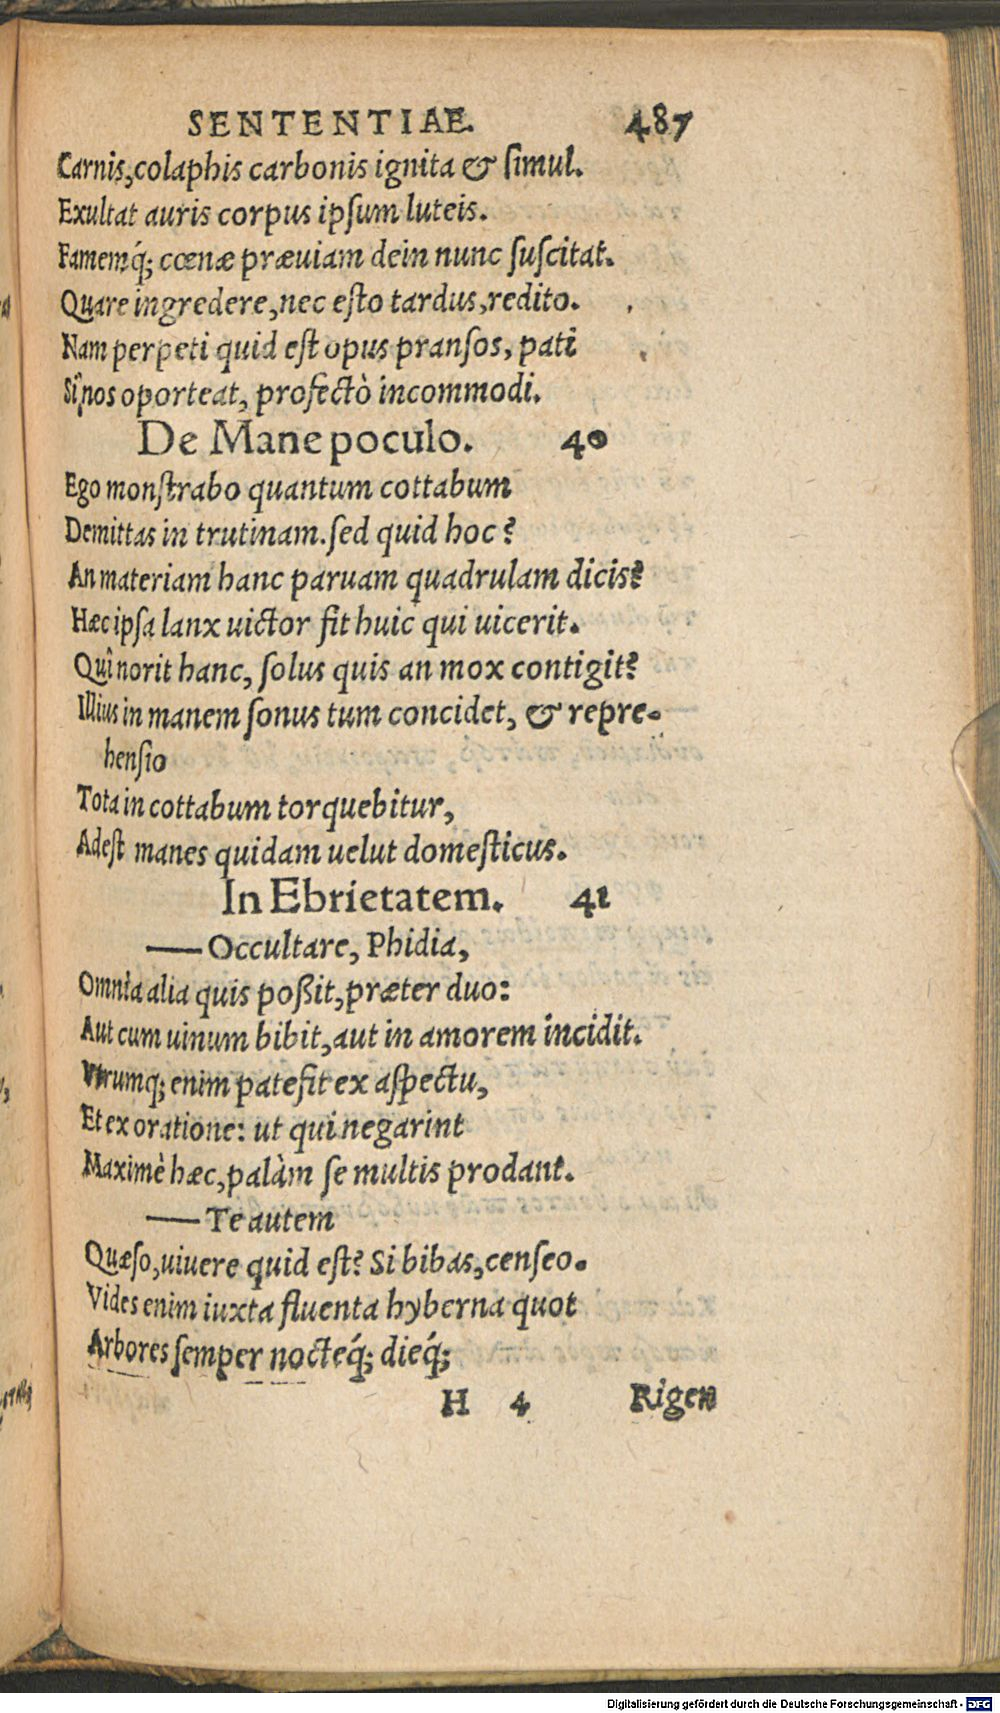 SENTENTIAE. 487
Carnis, colaphis carbonis ignita & ſimul.
Exultat auris corpus ipſum luteis.
Famemq́; cœnæ præuiam dein nunc ſuſcitat.
Quare ingredere, nec eſto tardus, redito.
Nam perpeti quid eſt opus pranſos, pati
Si nos oporteat, profectò incommodi.
De Mane poculo. 40
Ego monſtrabo quantum cottabum
Demittas in trutinam. ſed quid hoc?
An materiam hanc paruam quadrulam dicis?
Hæc ipſa lanx uictor fit huic qui uicerit.
Quî norit hanc, ſolus quis an mox contigit?
Illius in manem ſonus tum concidet, & repre-
henſio
Tota in cottabum torquebitur,
Adeſt manes quidam uelut domeſticus.
In Ebrietatem. 41
— Occultare, Phidia,
Omnia alia quis poßit, præter duo:
Aut cum uinum bibit, aut in amorem incidit.
Vtrumq; enim patefit ex aſpectu,
Et ex oratione: ut qui negarint
Maximè hæc, palàm ſe multis prodant.
— Te autem
Quæſo, uiuere quid eſt? Si bibas, cenſeo.
Vides enim iuxta fluenta hyberna quot
Arbores ſemper nocteq́; dieq́;
H 4 Rigen
Digitalisierung gefördert durch die Deutsche Forschungsgemeinschaft - DFG